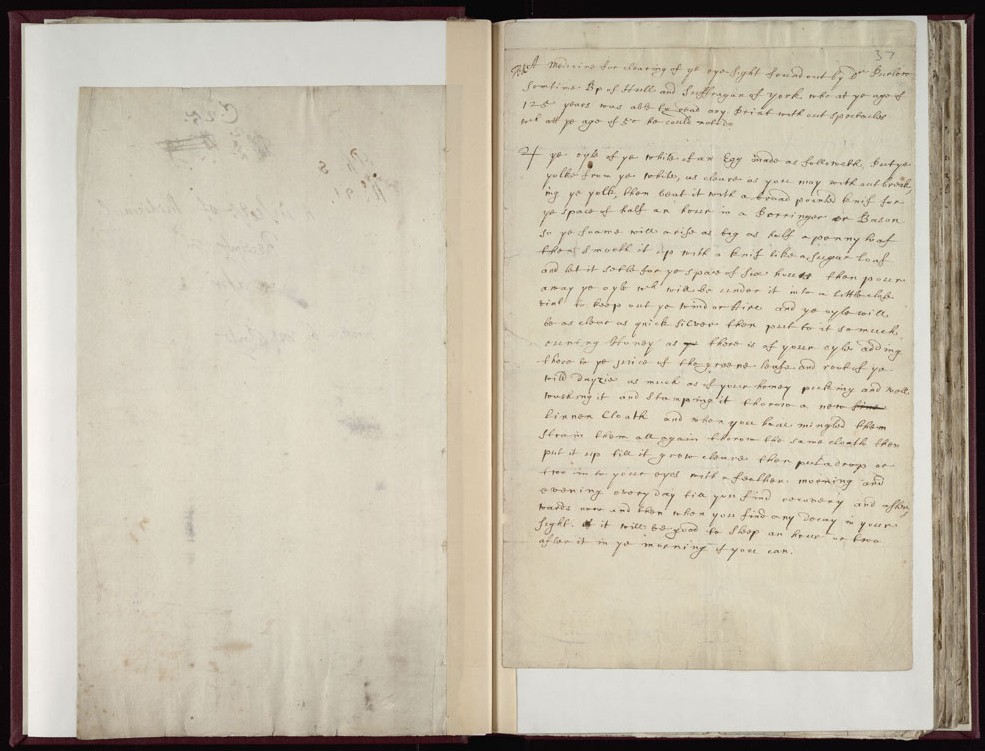 37
A Medicine for clearing of ye eye sight found out by Dr Purslow
somtime Bp of Hull and Suffragan of York. who at ye age of
125 years was able to read any Print with out Spectacles
wch att ye age of 50 he could not do
ye oyle of ye white of an Egg made as followeth, Put ye
yolke from ye white, as cleare as you may with out break
ing ye yolk, then beat it with a broad pointed knif for
ye space of half an hour in a Porringer or Bason
so ye foame will arise as big as half a penny loaf
then smooth it up with a knif like a sugar loaf
and let it setle for ye space of six hours then poure
away ye oyle wch will be under it into a little glass
vial to keep out ye wind or Aire and ye oyle will
be as clear as quick silver then put to it so much
runing Honey as there is of your oyle adding
there to ye juice of the greene leafe and root of ye
wild dayzie as much as of your honey picking and well
washing it and stamping it thorow a new fine
Linnen Cloath and when you have mingled them
strain them all again thorow the same cloath then
put it up till it grow cleare then put a drop or
two in to your eyes with a feather morning and
evening every day till you find recovery and after
wards now and then when you find any decay in your
sight. it will be good to sleep an hour or two
after it in ye morning if you can.